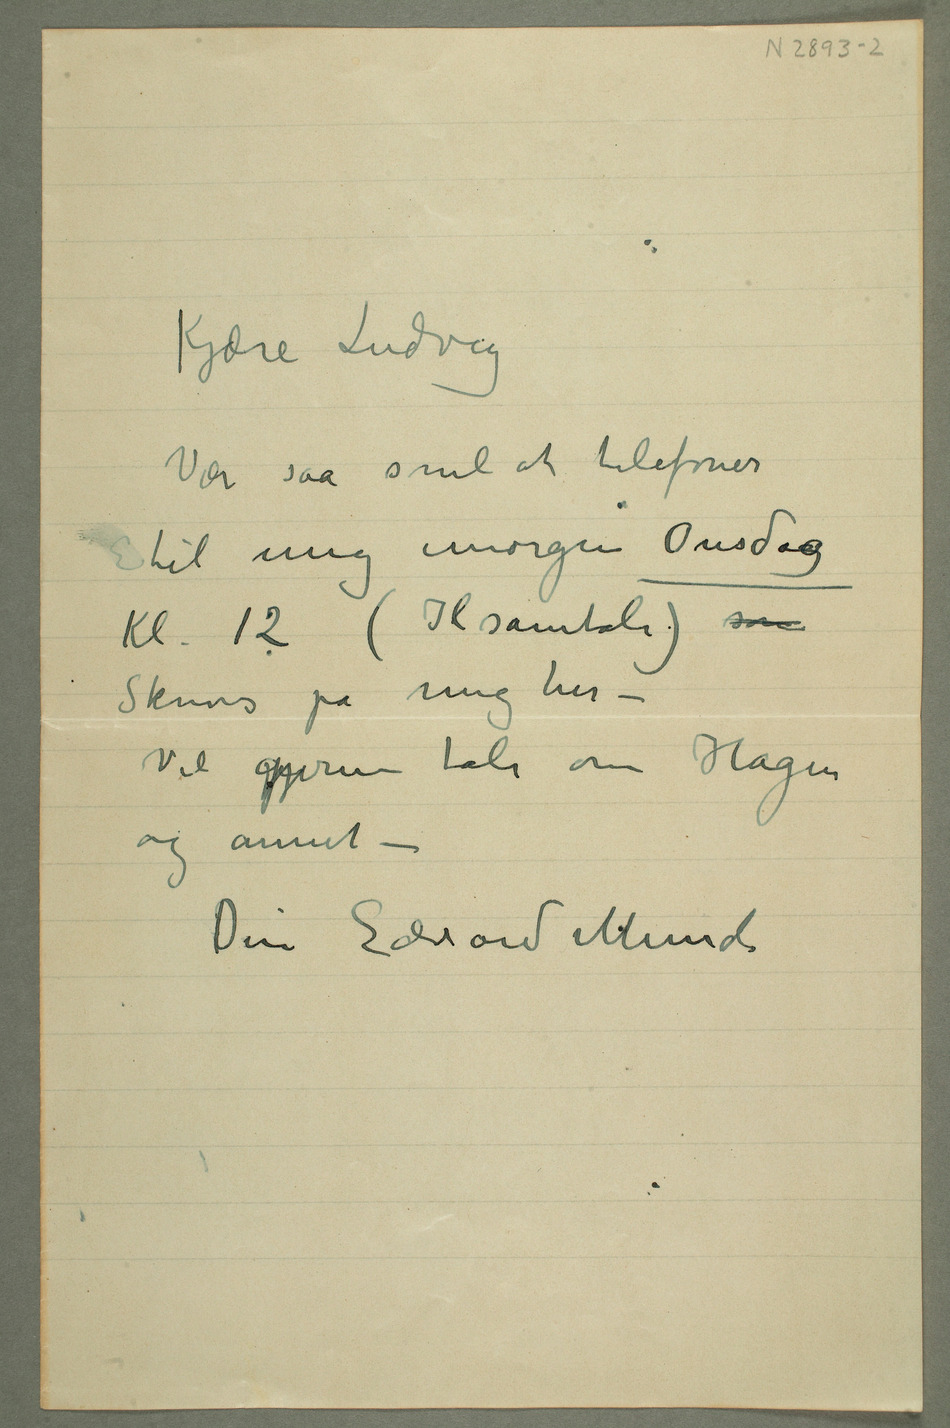 N 2893-2
Kjære Ludvig
Vær saa snil at telefoner
til mig imorgen Onsdag
Kl. 12 (Ilsamtale) som
Skrives på mig her –
Vil gjerne tale om Hagen
og annet –
Din Edvard Munch